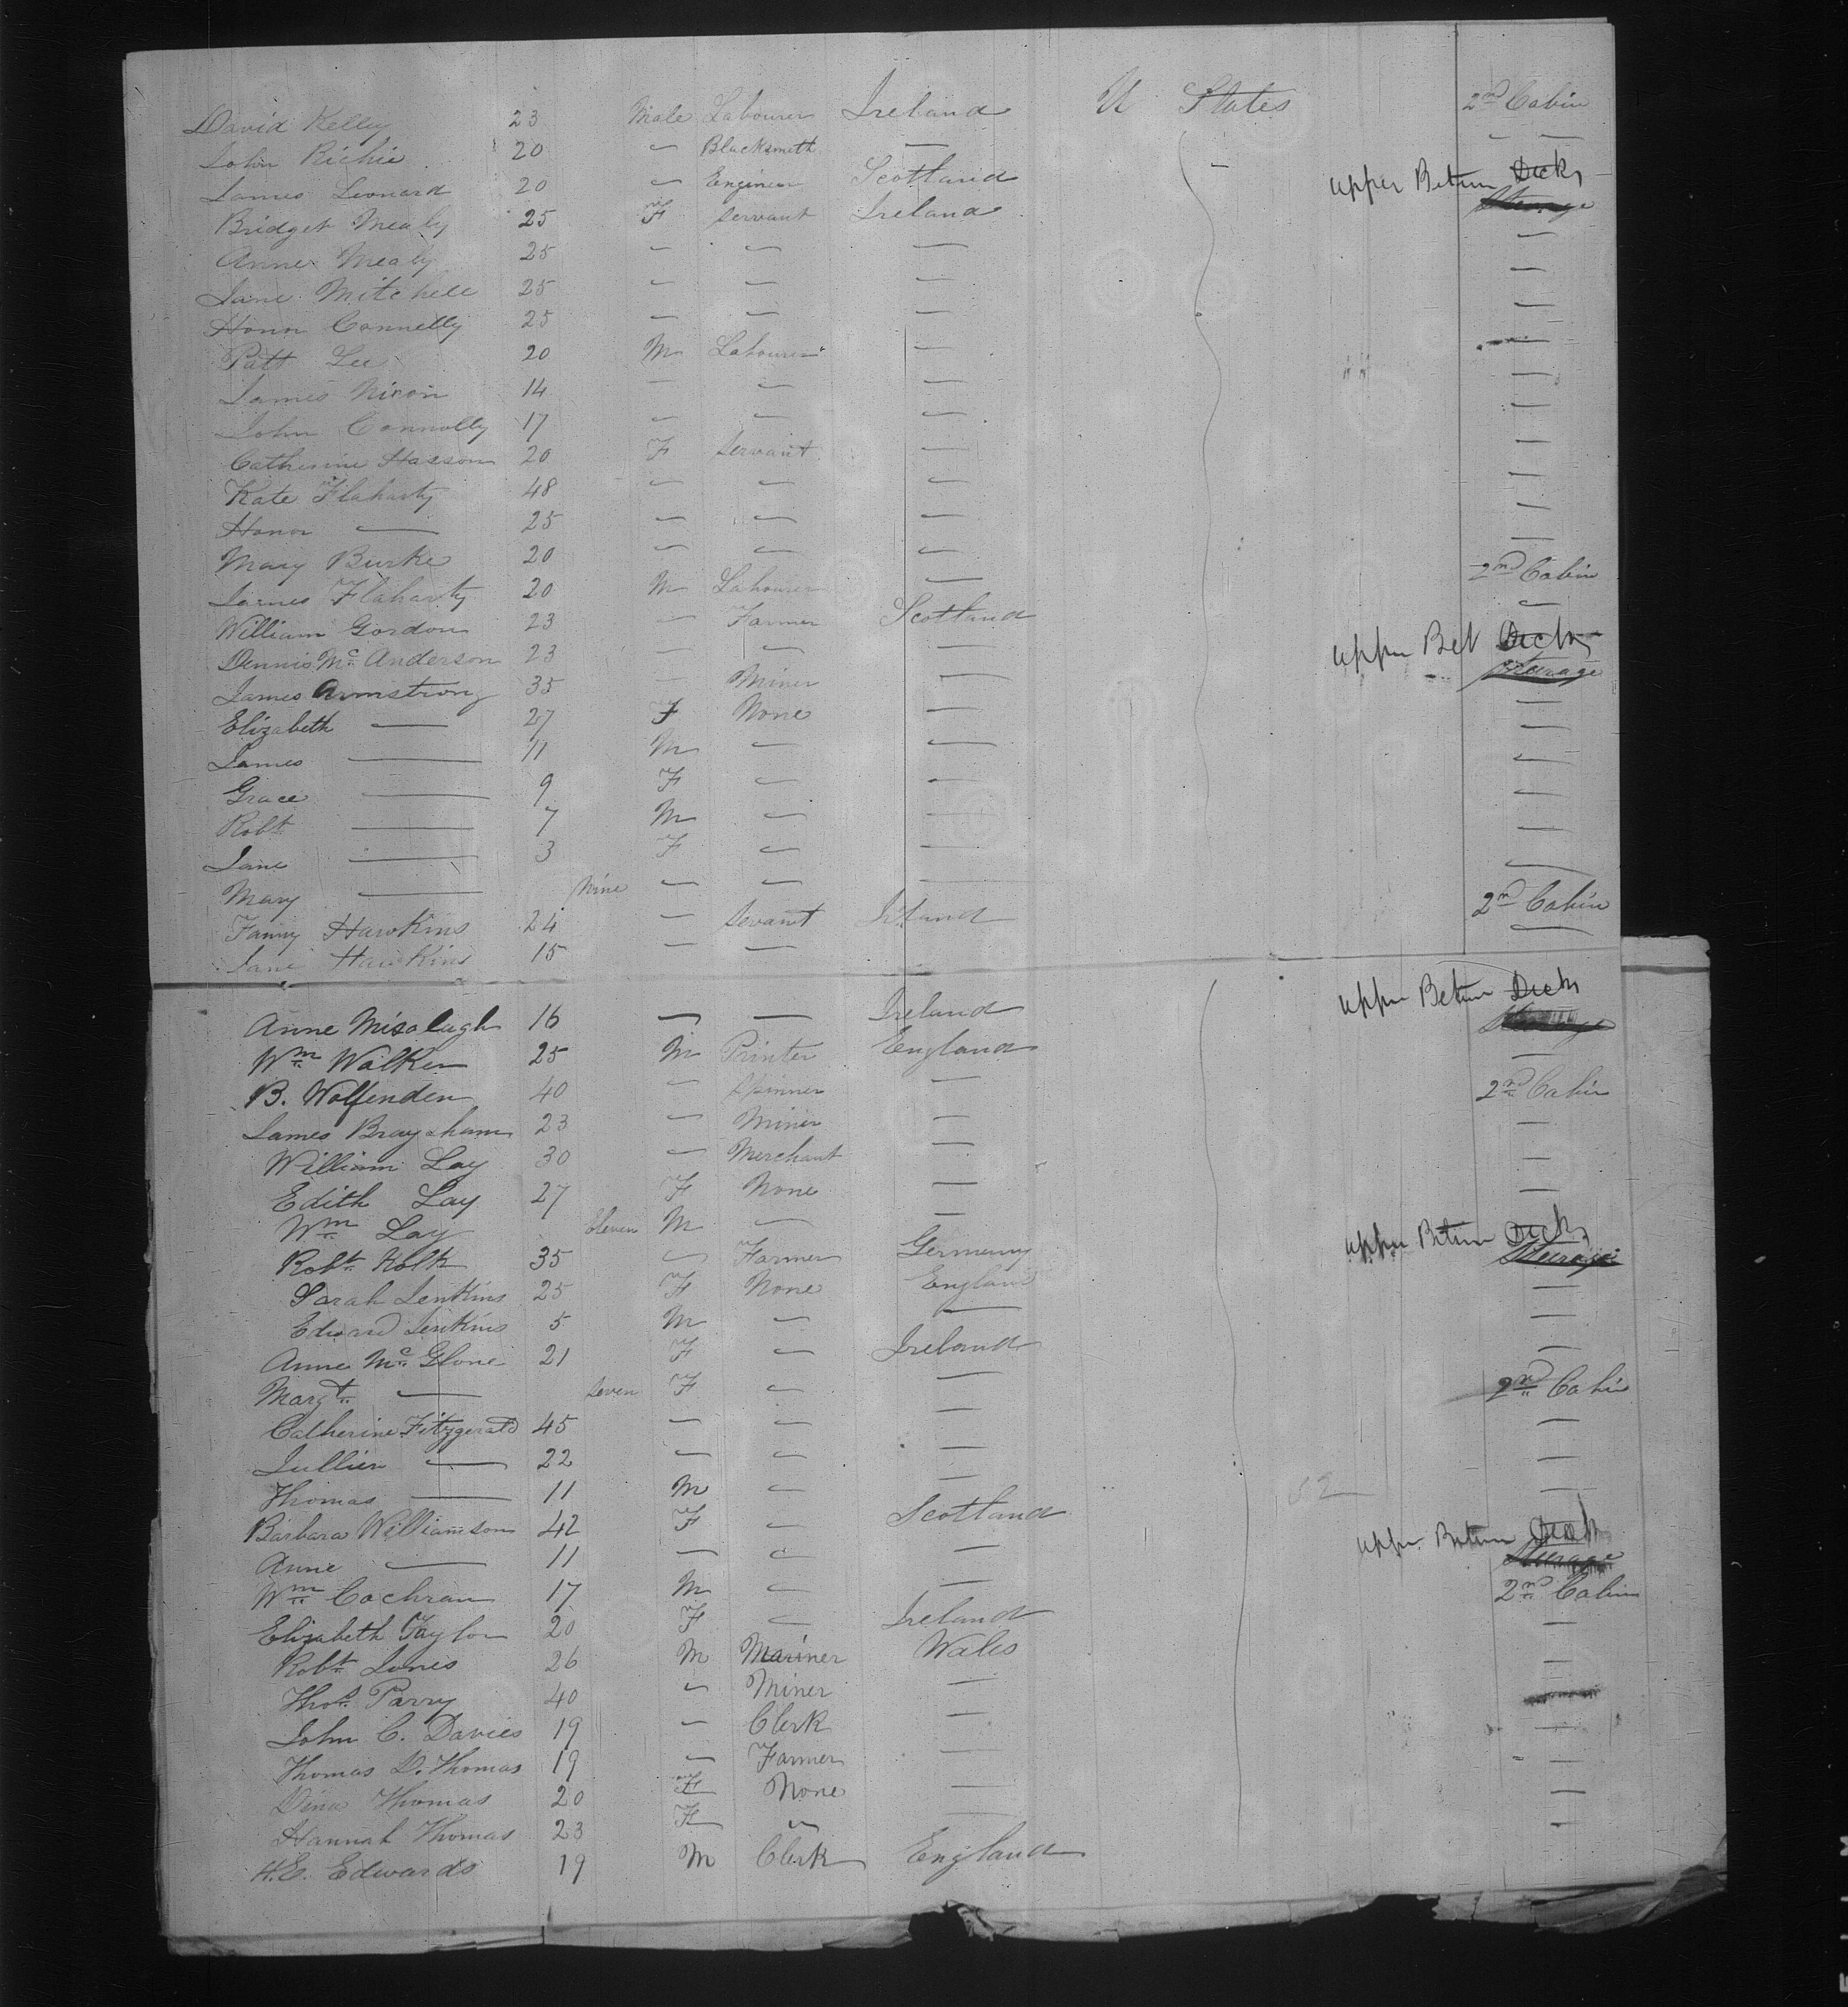 David Kelly 23 Male Labourer Ireland U States 2nd Cabin
John Richie 20 " Blacksmith — — —
James Leonard 20 " Engineer Scotland — Upper Betwn Decks
Bridget Mealy 25 F Servant Ireland Steerage
Anne Mealy 25 " " — —
Jane Mitchell 25 " " — —
Honor Connelly 25 " " — —
Patt Lee 20 M Labourer — —
James Nixon 14 " " — —
John Connolly 17 " " — —
Catherine Hasson 20 F Servant — —
Kate Flaharty 48 " " — —
Honor — 25 " " — —
Mary Burke 20 " " — —
James Flaharty 20 M Labourer — 2nd Cabin
William Gordon 23 " Farmer Scotland "
Dennis Mc Anderson 23 — " — Upper Bet Decks
James Armstrong 35 — Miner — Steerage
Elizabeth — 27 F None — —
James — 11 M " — —
Grace — 9 F " — —
Robt — 7 M " — —
Jane — 3 F " — —
Mary — Nine " " — —
Fanny Hawkins 24 " Servant Ireland 2nd Cabin
Jane Hawkins 15 " — —
Anne 16 — — Ireland Upper Betwn Decks
Steerage
Wm Walker 25 M Printer England —
B. Wolfenden 40 " Spinner — 2nd Cabin
James Brayshaw 23 " Miner — —
William Lay 30 " Merchant — —
Edith Lay 27 F None — —
Wm Lay Eleven M — — Upper Betwn Decks
Robt Kolk 35 " Farmer Germany Steerage
Sarah Jenkins 25 F None England —
Edward Jenkins 5 M " — —
Anne Mc Glone 21 F " Ireland —
Margt — Seven F " — 2nd Cabin
Catherine Fitzgerald 45 — " — —
Jullien — 22 " " — —
Thomas — 11 M " — —
Barbara Williamson 42 F " Scotland Upper Betwn Decks
Anne — 11 — " — Steerage
Wm Cochran 17 M " — 2nd Cabin
Elizabeth Taylor 20 F " Ireland —
Robt Jones 26 M Mariner Wales —
Thos Parry 40 " Miner —
John C. Davies 19 " Clerk — —
Thomas D. Thomas 19 " Farmer — —
Dina Thomas 20 F None — —
Hannah Thomas 23 F " — —
H.E. Edwards 19 M Clerk England